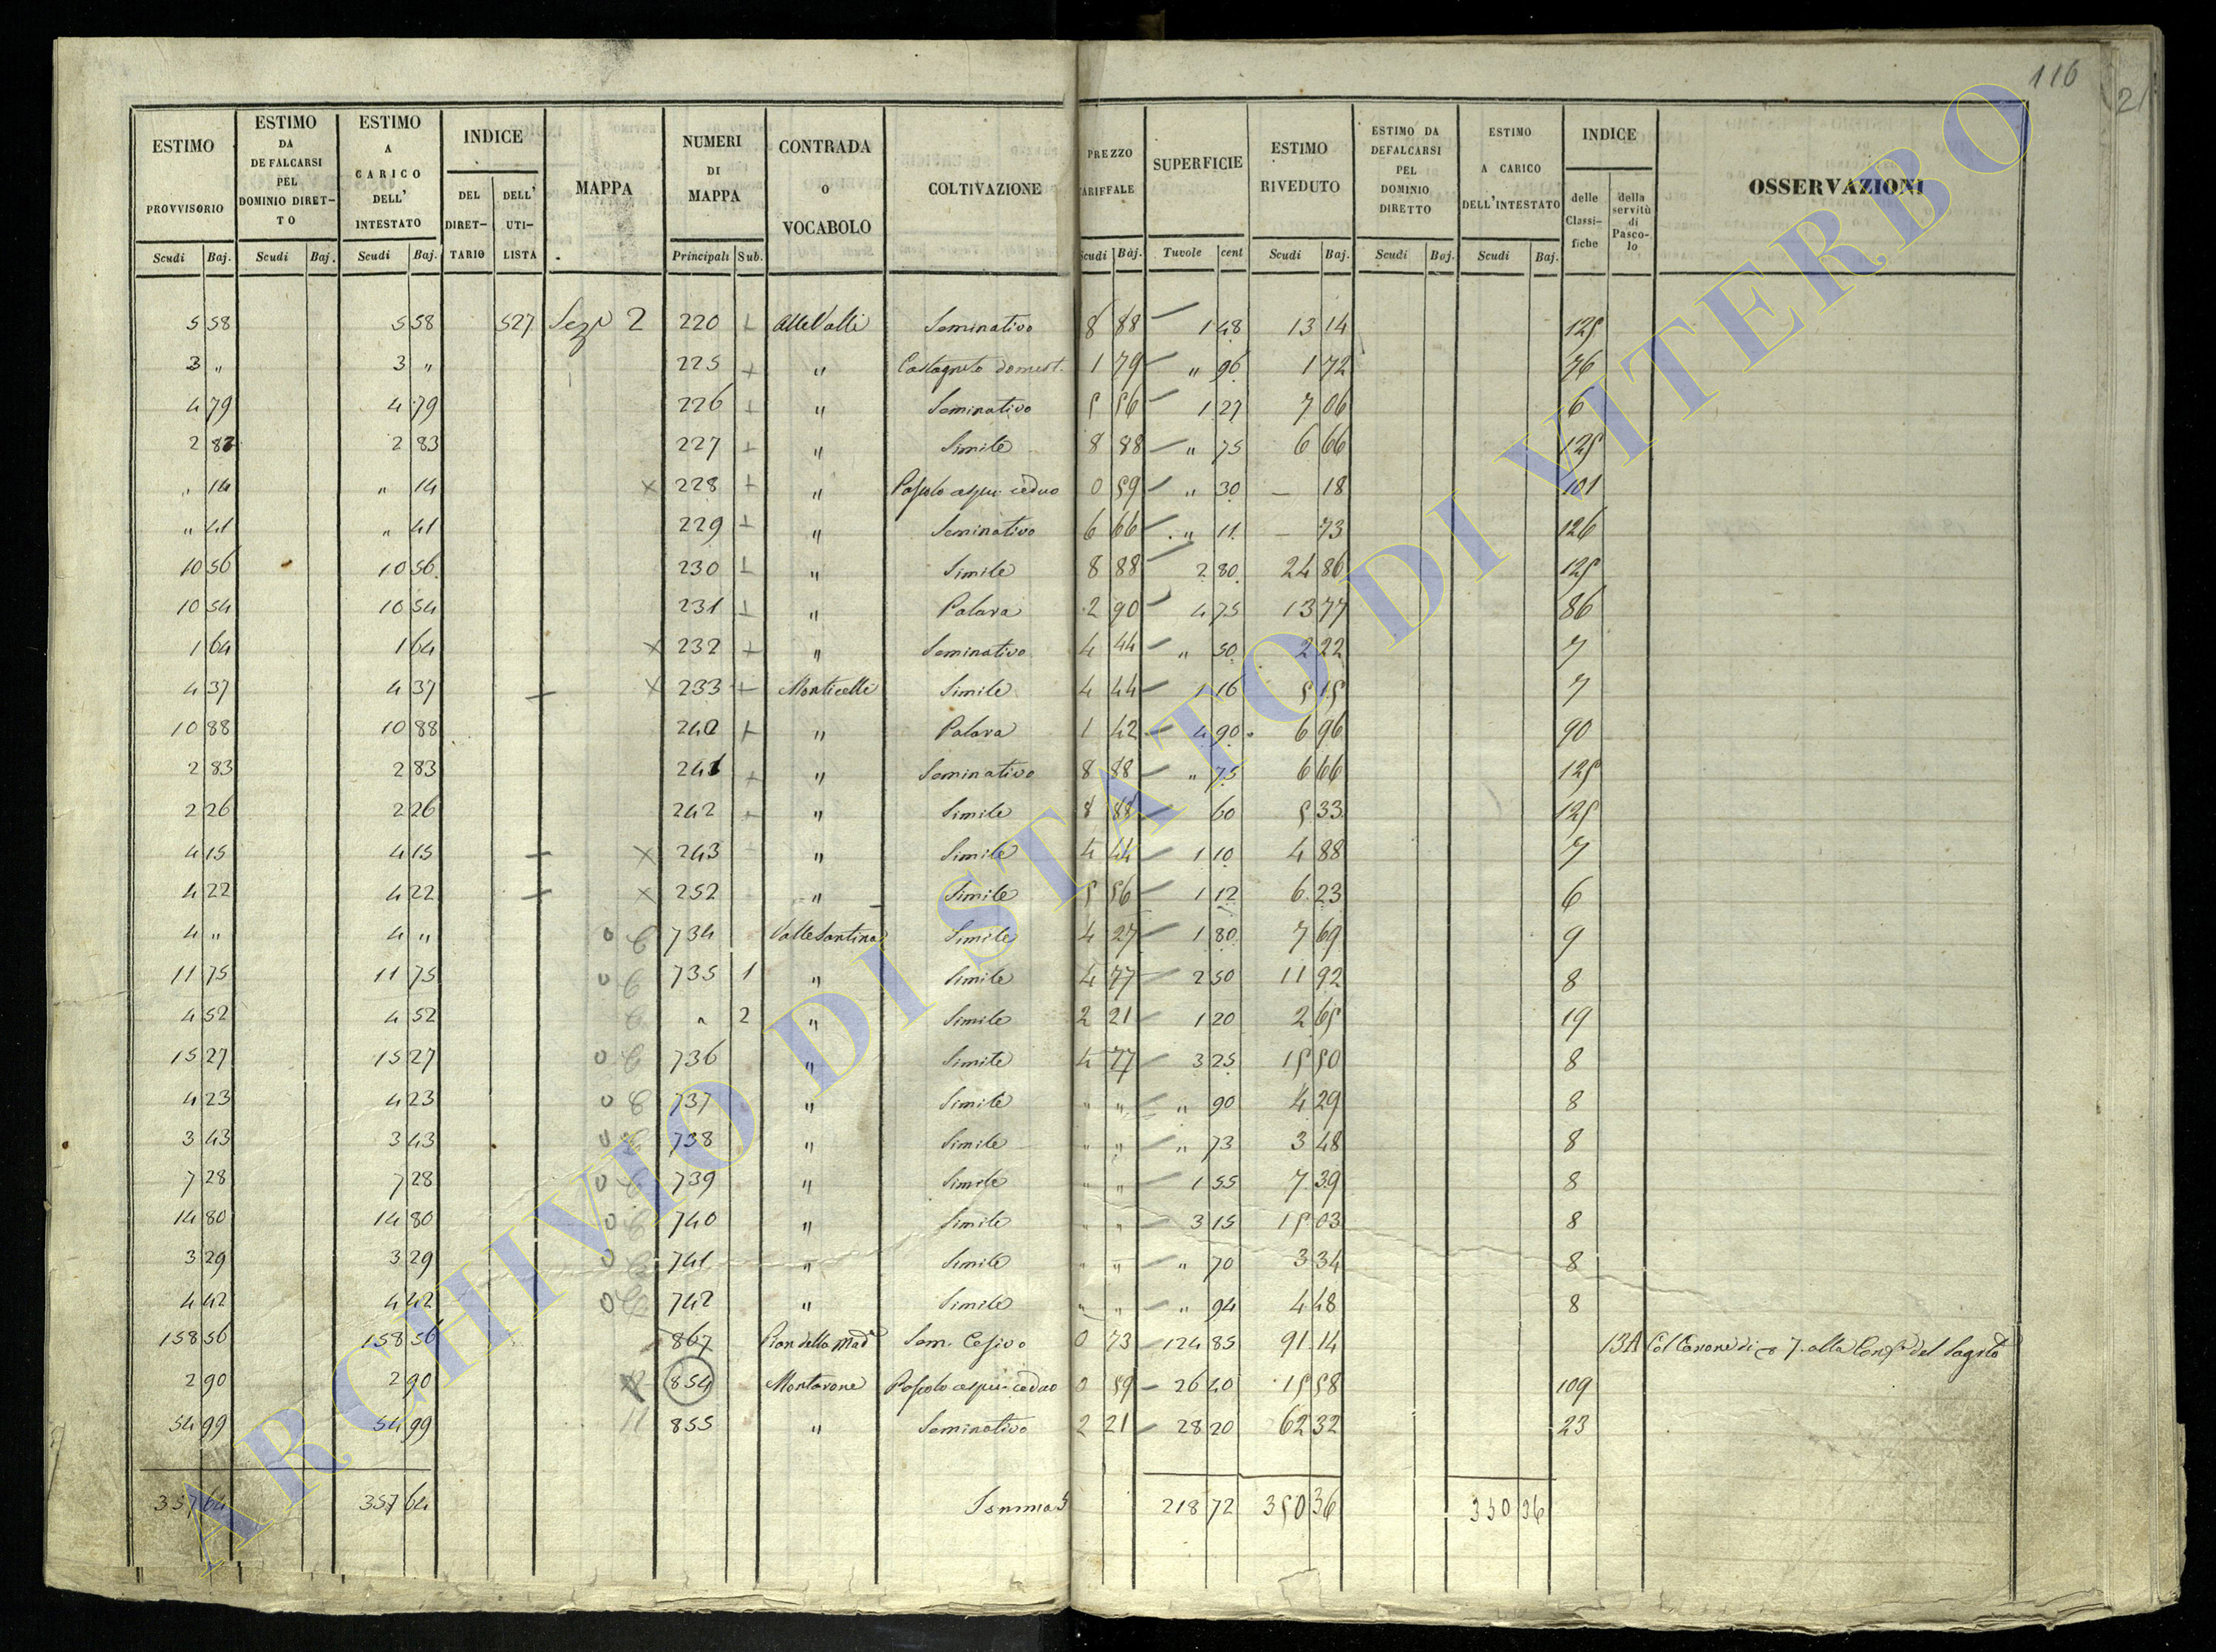 116
21
ESTIMO PROVVISORIO Scudi Baj. | ESTIMO DA DEFALCARSI PEL DOMINIO DIRET-TO Scudi Baj. | ESTIMO A CARICO DELL' INTESTATO Scudi Baj. | INDICE DEL DIRET-TARIO DELL' UTI-LISTA | MAPPA | NUMERI DI MAPPA Principali Sub. | CONTRADA O VOCABOLO | COLTIVAZIONE | PREZZO TARIFFALE Scudi Baj. | SUPERFICIE Tavole cent | ESTIMO RIVEDUTO Scudi Baj. | ESTIMO DA DEFALCARSI PEL DOMINIO DIRETTO Scudi Baj. | ESTIMO A CARICO DELL'INTESTATO Scudi Baj. | INDICE delle Classi-fiche della servitù di Pasco-lo | OSSERVAZIONI
5 58 5 58 527 Seze 2 220 + Alle Valli Seminativo 8 88 1 48 13 14 125
3 " 3 " 225 + " Castagneto domest. 1 79 " 96 1 72 76
4 79 4 79 226 + " Seminativo 5 56 1 27 7 06 6
2 83 2 83 227 + " Simile 8 88 " 75 6 66 125
" 14 " 14 × 228 + " Pascolo cespu. ceduo 0 59 " 30 — 18 101
" 41 " 41 229 + " Seminativo 6 66 " 11 — 73 126
10 56 10 56 230 + " Simile 8 88 2 80 24 86 125
10 54 10 54 231 + " Palara 2 90 4 75 13 77 86
1 64 1 64 × 232 + " Seminativo 4 44 " 50 2 22 7
4 37 4 37 × 233 + Monticelli Simile 4 44 1 16 5 15 7
10 88 10 88 240 + " Palara 1 42 4 90 6 96 90
2 83 2 83 241 + " Seminativo 8 88 " 75 6 66 125
2 26 2 26 242 + " Simile 8 88 60 5 33 125
4 15 4 15 × 243 " Simile 4 44 1 10 4 88 7
4 22 4 22 × 252 " Simile 5 56 1 12 6 23 6
4 " 4 " 0 734 Valle Santina Simile 4 27 1 80 7 69 9
11 75 11 75 0 735 1 " Simile 4 77 2 50 11 92 8
4 52 4 52 " 2 " Simile 2 21 1 20 2 65 19
15 27 15 27 0 736 " Simile 4 77 3 25 15 50 8
4 23 4 23 0 737 " Simile " " " 90 4 29 8
3 43 3 43 0 738 " Simile " " " 73 3 48 8
7 28 7 28 0 739 " Simile " " 1 55 7 39 8
14 80 14 80 0 740 " Simile " " 3 15 15 03 8
3 29 3 29 0 741 " Simile " " " 70 3 34 8
4 42 4 42 0 742 " Simile " " " 94 4 48 8
158 56 158 56 867 Pian della Mad.a Sem. Cesivo 0 73 124 85 91 14 13A Col Canone di 7. alla del
2 90 2 90 854 Montarone Pascolo cespu. ceduo 0 59 26 40 15 58 109
54 99 54 99 11 855 " Seminativo 2 21 28 20 62 32 23
357 64 357 64 Somma 218 72 350 36 350 36
ARCHIVIO DI STATO DI VITERBO